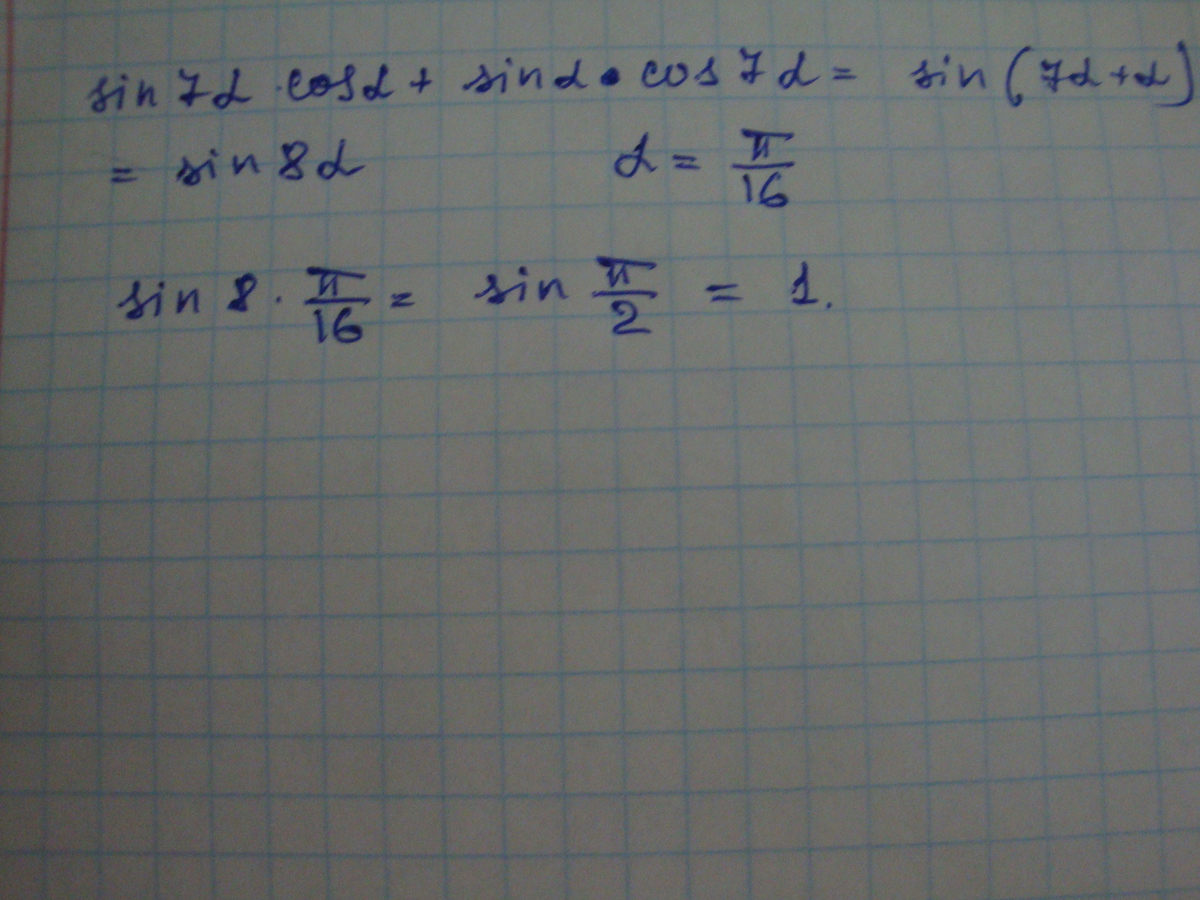 sin 7α · cos α + sin α · cos 7α = sin (7α + α)
= sin 8α α = π/16
sin 8 · π/16 = sin π/2 = 1.